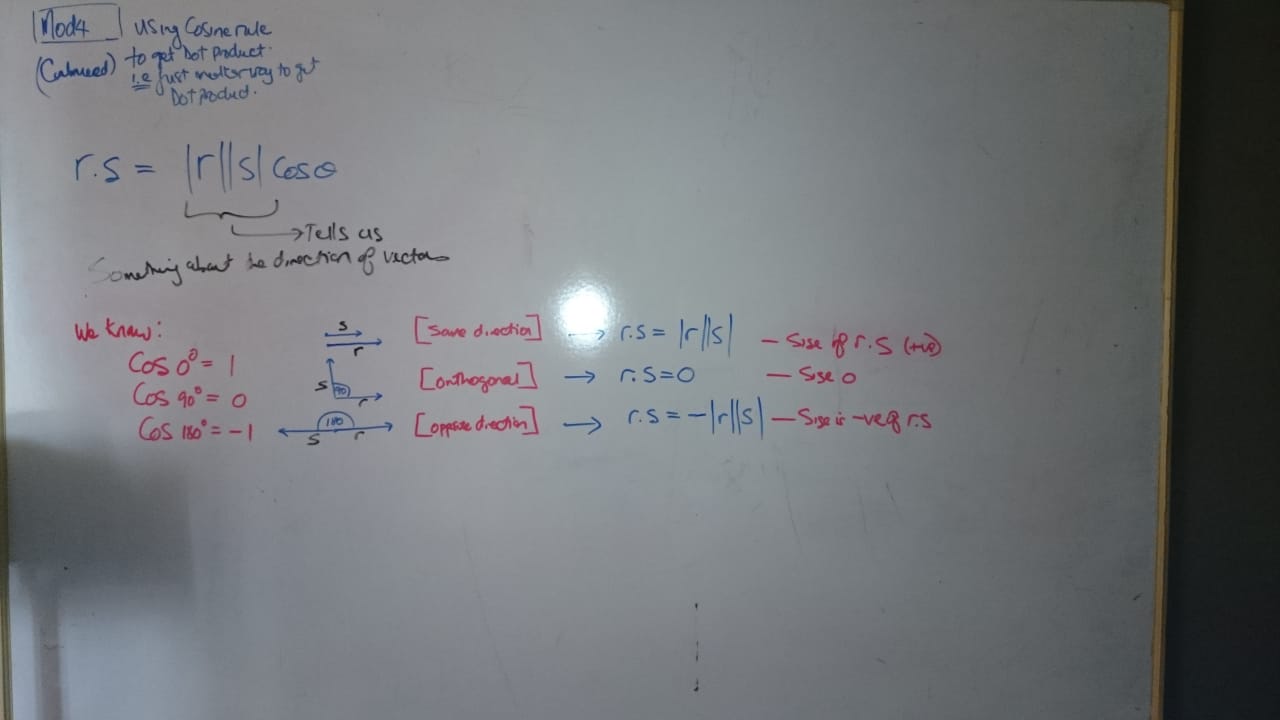 Mod4
Using Cosine rule
(Continued) to get Dot Product.
i.e just another way to get
Dot Product.
r.s = |r||s| cosθ
→ Tells us
Something about the direction of vectors
We know:
Cos 0° = 1
s
r
[Same direction] → r.s = |r||s| — Sise of r.s (+ve)
Cos 90° = 0
s
90
r
[orthogonal] → r.s = 0 — Sise 0
Cos 180° = -1
180
s r
[opposite direction] → r.s = -|r||s| — Sise is -ve of r.s